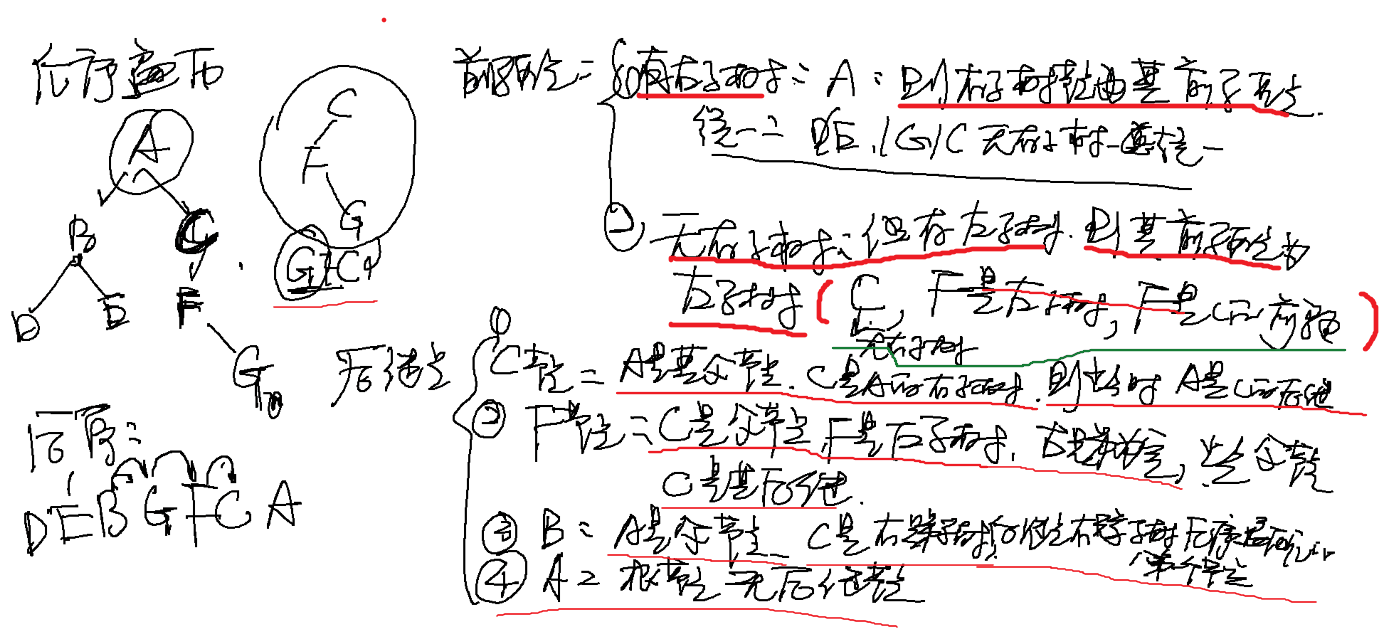 后序遍历
A
B C
D E F
G
C
F
G
GFC
后序:
DEBGFCA
前驱结点:
① 有右子树: A: 则右子树结点为其前驱结点.
DE, G, C 无右子树
② 无右子树: 但存左子树. 则其前驱结点为
左子树 (C, F是左子树, F是C的前驱)
无右子树
后继结点
① C节点: A是其父节点. C是A的右子树. 则此时 A是C的后继
② F节点: C是父节点, F是左子树, 右兄弟为空, 父节点
C是其后继.
③ B: A是父节点 C是右兄弟子树, 后序遍历的
第一个节点
④ A: 根节点 无后继节点